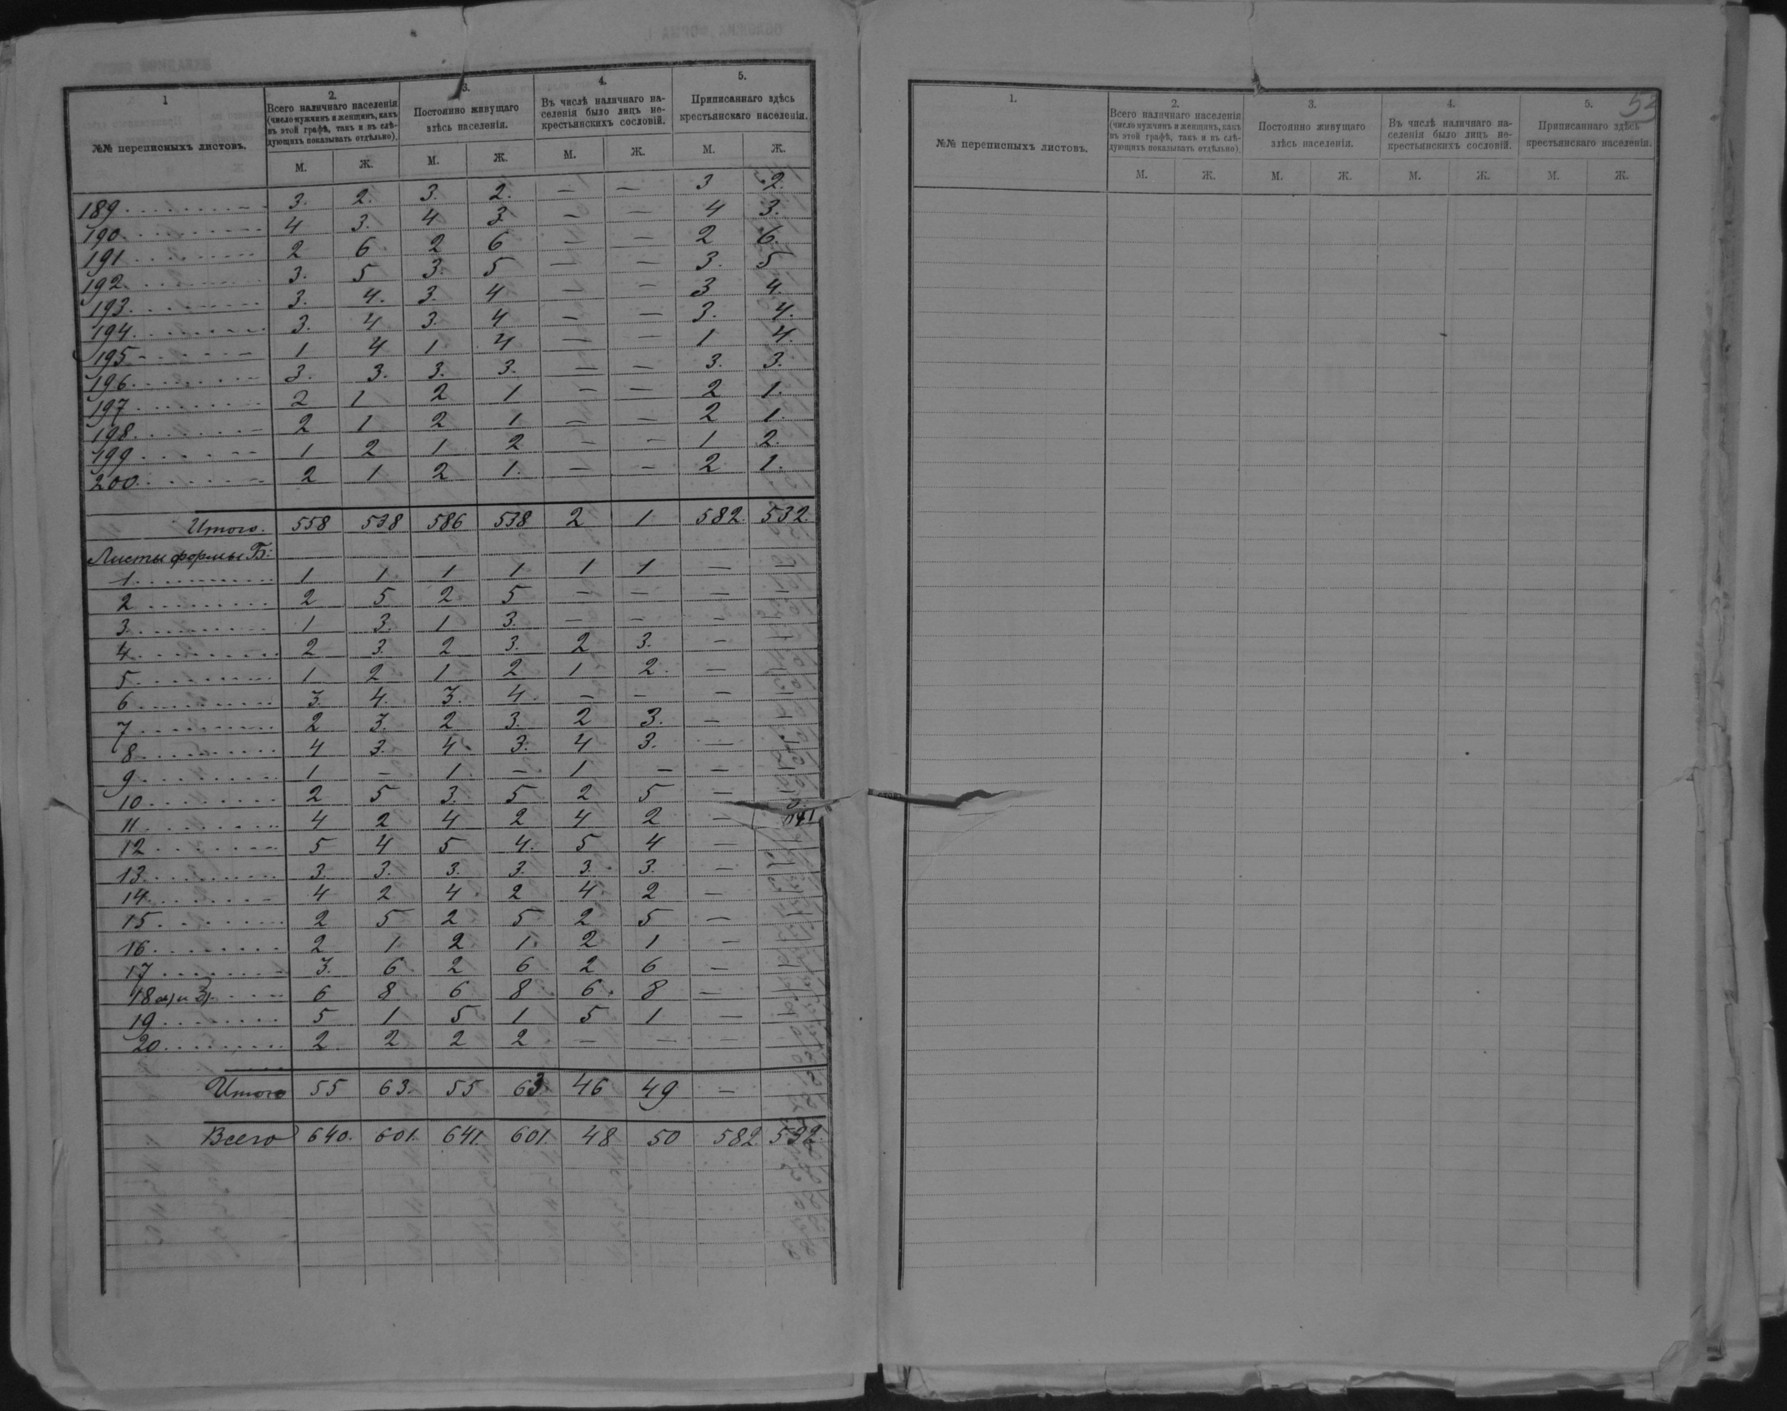 1
2.
Всего наличнаго населенія
(число мужчинъ и женщинъ, какъ
въ этой графѣ, такъ и въ слѣ-
дующихъ показывать отдѣльно).
3.
Постоянно живущаго
здѣсь населенія.
4.
Въ числѣ наличнаго на-
селенія было лицъ не-
крестьянскихъ сословій.
5.
Приписаннаго здѣсь
крестьянскаго населенія.
№№ переписныхъ листовъ.
М. Ж. М. Ж. М. Ж. М. Ж.
189 3. 2. 3. 2. — — 3 2.
190 4 3. 4 3 — — 4 3.
191 2 6 2 6 — — 2 6.
192 3. 5 3. 5 — — 3. 5
193 3. 4. 3. 4 — — 3 4.
194 3. 4 3. 4 — — 3. 4.
195 1 4 1 4 — — 1 4.
196 3. 3. 3. 3. — — 3. 3.
197 2 1 2 1 — — 2 1.
198 2 1 2 1 — — 2 1.
199 1 2 1 2 — — 1 2.
200 2 1 2 1. — — 2 1.
Итого. 558 538 586 538 2 1 582. 532.
Листы формы Б:
1 1 1 1 1 1 1 —
2 2 5 2 5 — — —
3 1 3. 1 3. — — —
4 2 3. 2 3. 2 3. —
5 1 2 1 2 1 2. —
6 3. 4. 3. 4. — — —
7 2 3. 2 3. 2 3. —
8 4 3. 4. 3. 4 3. —
9 1 — 1. — 1 — —
10 2 5 3. 5 2 5 —
11 4 2 4 2 4 2 —
12 5 4 5 4. 5 4 —
13 3. 3. 3. 3. 3. 3. —
14 4 2 4 2 4 2 —
15 2 5 2 5 2 5 —
16 2 1. 2 1. 2 1 —
17 3. 6 2 6 2 6 —
18 6 8 6 8 6. 8 —
19 5 1 5 1 5 1 —
20 2 2 2 2 — — —
Итого 55 63. 55 63 46 49 —
Всего 640. 601. 641. 601. 48 50 582. 532.
53
1.
2.
Всего наличнаго населенія
(число мужчинъ и женщинъ, какъ
въ этой графѣ, такъ и въ слѣ-
дующихъ показывать отдѣльно)
3.
Постоянно живущаго
здѣсь населенія.
4.
Въ числѣ наличнаго на-
селенія было лицъ не-
крестьянскихъ сословій.
5.
Приписаннаго здѣсь
крестьянскаго населенія.
№№ переписныхъ листовъ.
М. Ж. М. Ж. М. Ж. М. Ж.